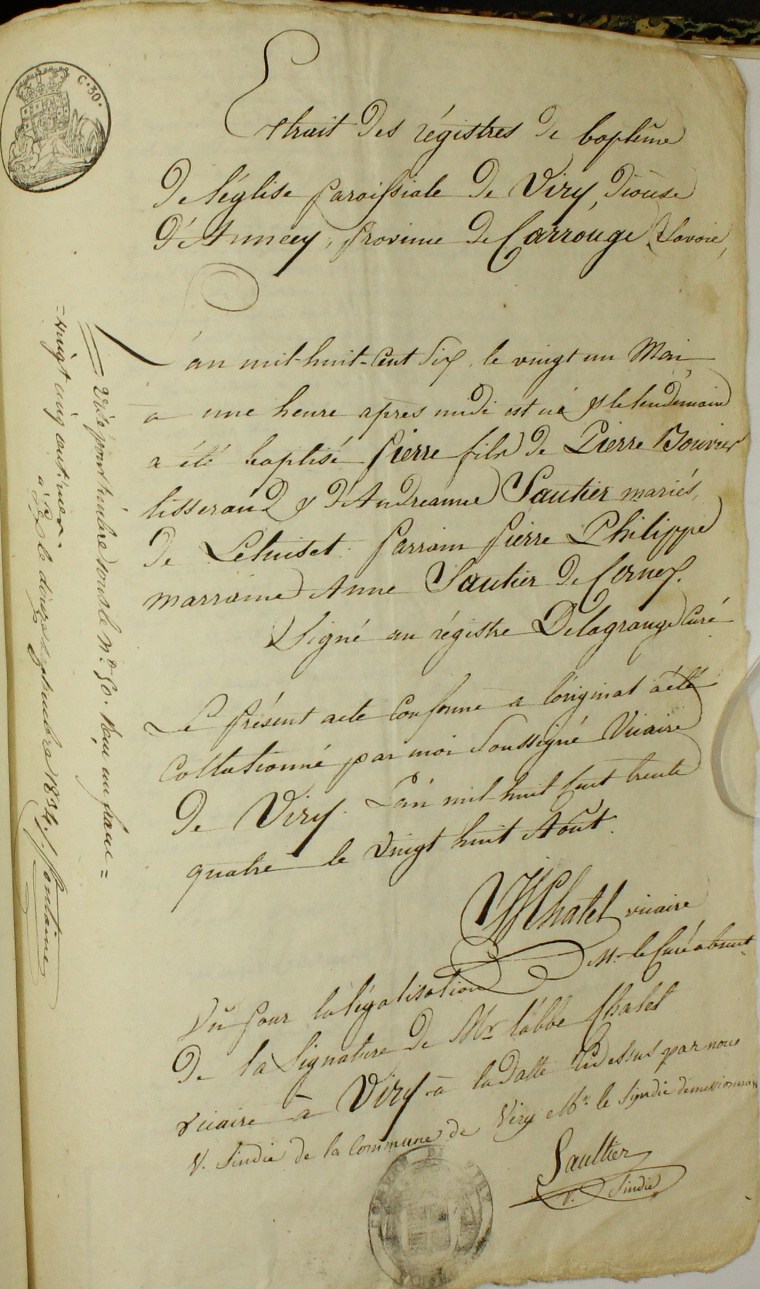 C. 30.
Extrait des régistres de baptême
De l'église paroissiale de Viry, diocèse
D'Annecy, province de Carrouge (Savoie)
L'an mil-huit-cent six, le vingt un Mai
a une heure apres midi est né & le lendemain
a été baptisé Pierre fils de Pierre Bouvier
tisserand & d'Andreanne Sautier mariés,
de Lehuiset. Parrain Pierre Philippe
marraine Anne Sautier de Cernex.
Signé au régistre Delagrange Curé
Le présent acte conforme a l'original a été
Collationné par moi Soussigné Vicaire
de Viry. L'an mil huit cent trente
quatre le vingt huit Août.
Chatel vicaire
Mr. le Curé absent.
Vû pour la légalisation
De la Signature de Mr l'abbé Chatel
vicaire à Viry à la datte cidessus par nous
V. Sindic de la Commune de Viry Mr. le Syndic démissionnaire
Saultier
V. Sindic
Visé pour timbre sous le No. 50. Reçu un franc
= vingt cinq centimes.
à Gex le dix septembre 1834. Fontaine